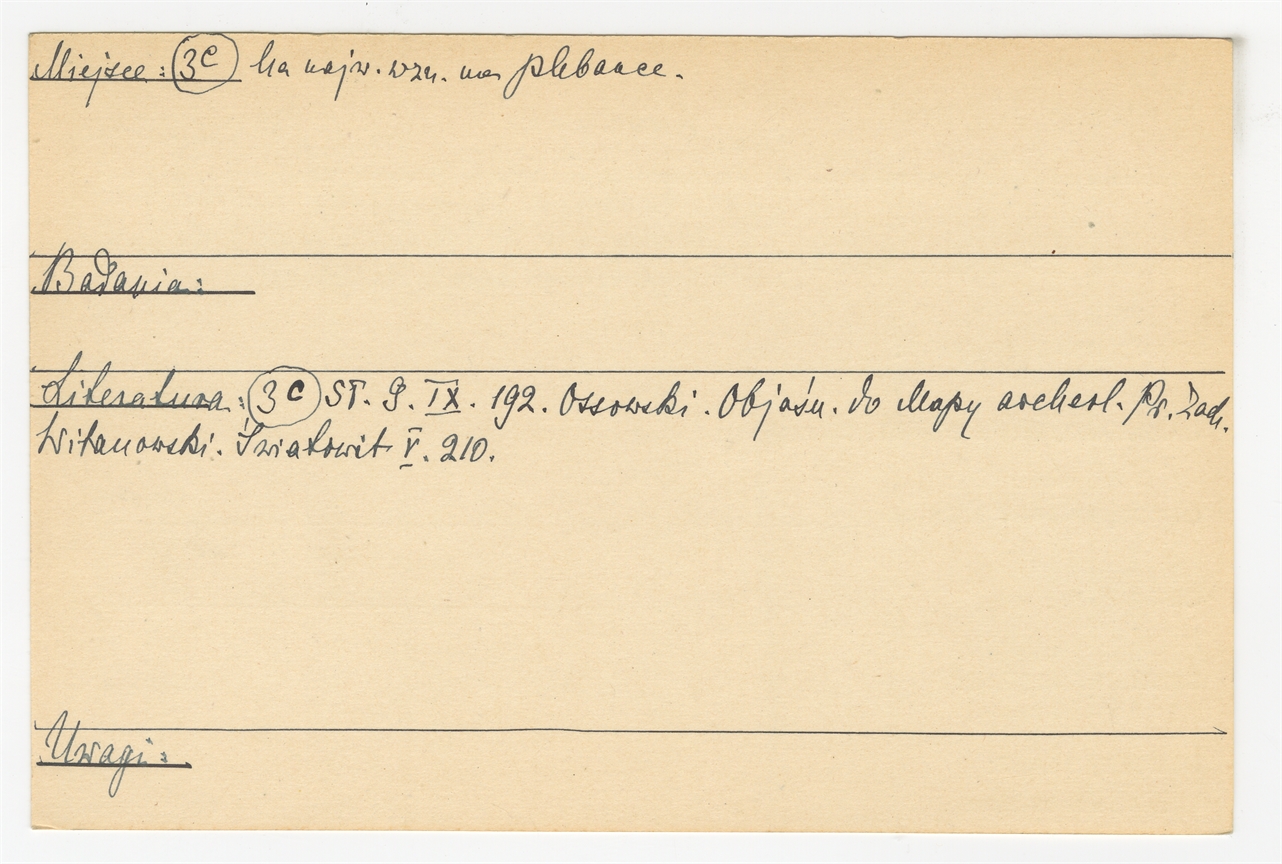 Miejsce: 3c Na najw. wzn. na plebance.
Badania:
Literatura: 3c ST. G. IX. 192. Ossowski. Objaśn. do Mapy archeol. Pr. Zach.
Witanowski. Światowit V. 210.
Uwagi: